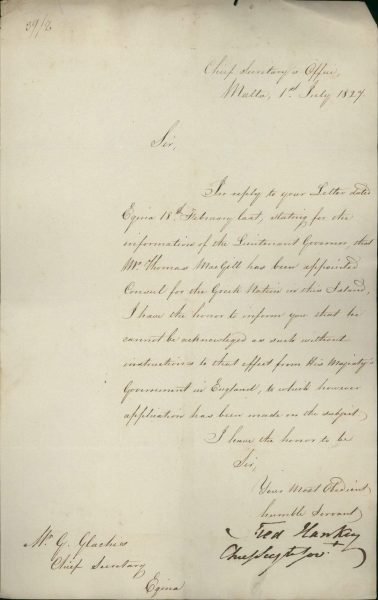 39/2
Chief Secretary's Office,
Malta, 1st July 1827.
Sir,
In reply to your Letter dated
Egina 18th February last, stating for the
information of the Lieutenant Governor, that
Mr. Thomas MacGill has been appointed
Consul for the Greek Nation in this Island,
I have the honor to inform you that he
cannot be acknowledged as such without
instructions to that effect from His Majesty's
Government in England, to which however
application has been made on the subject.
I have the honor to be
Sir,
Your Most Obedient
humble Servant
Fred Hankey
Chief Secy to Govt
Mr. G. Glackis
Chief Secretary
Egina